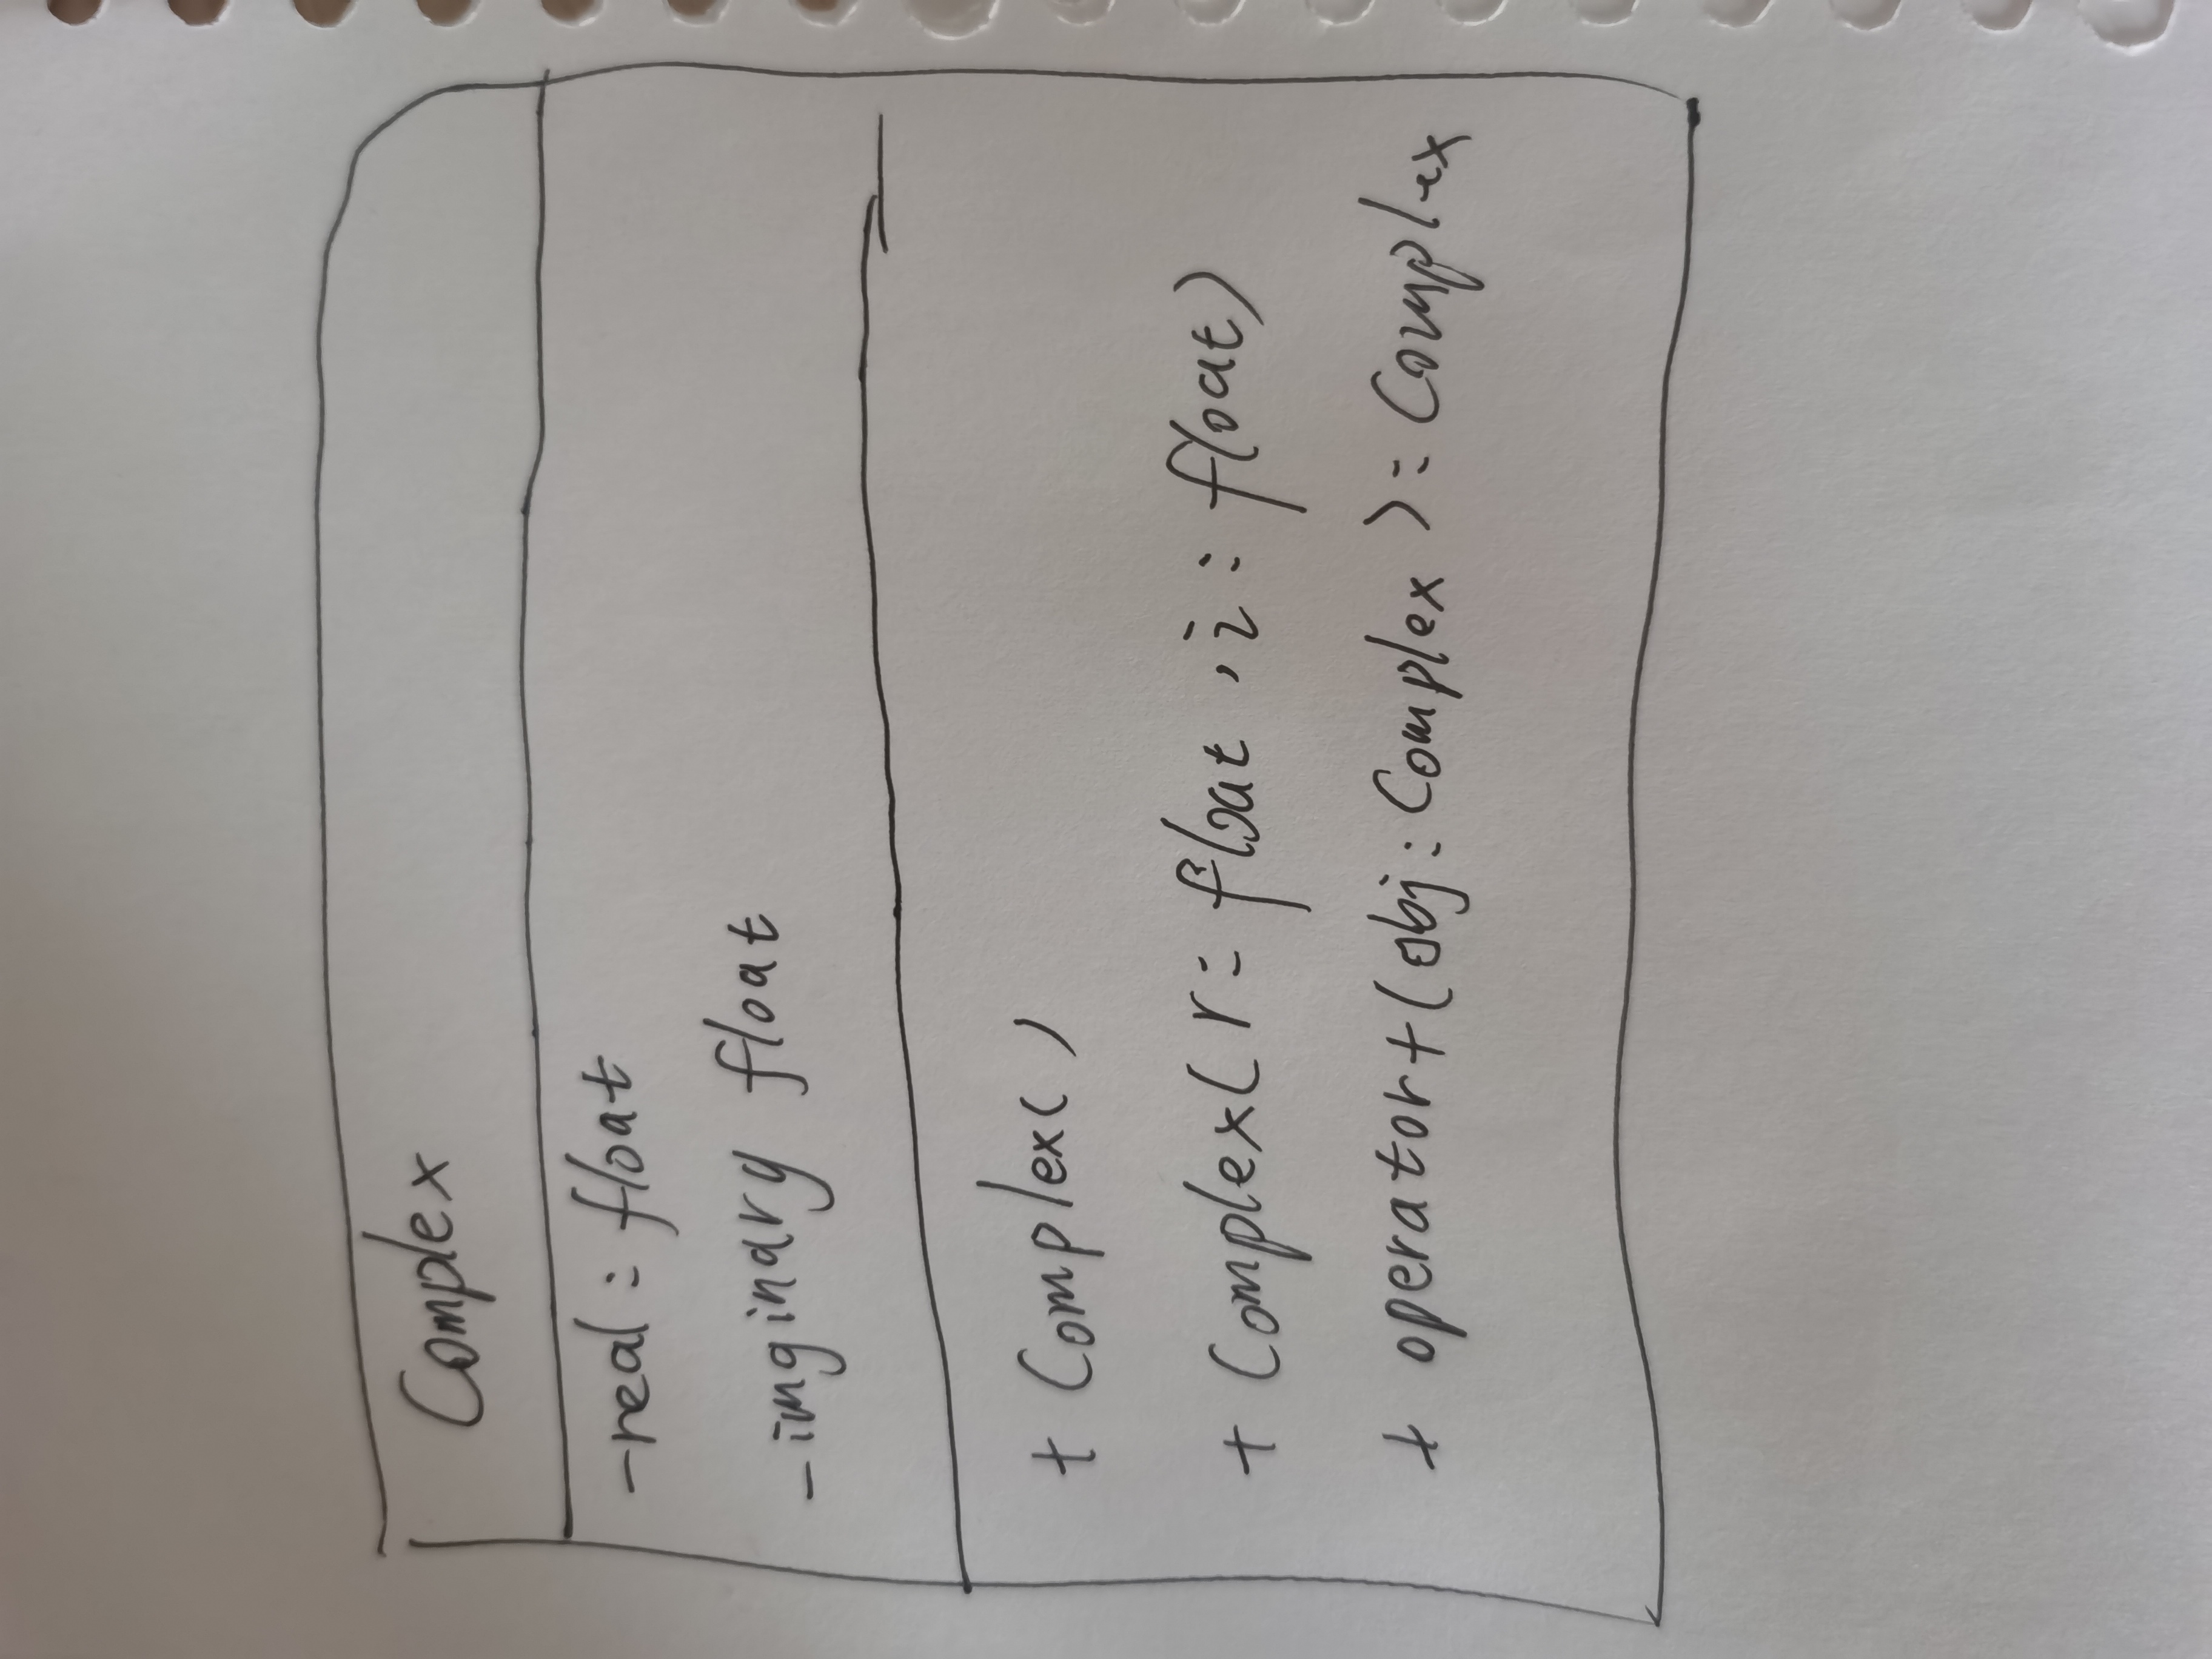 Complex
-real : float
-imgindry float
+ Complex( )
+ Complex( r : float , i : float)
+ operator+(obj : Complex ) : Complex